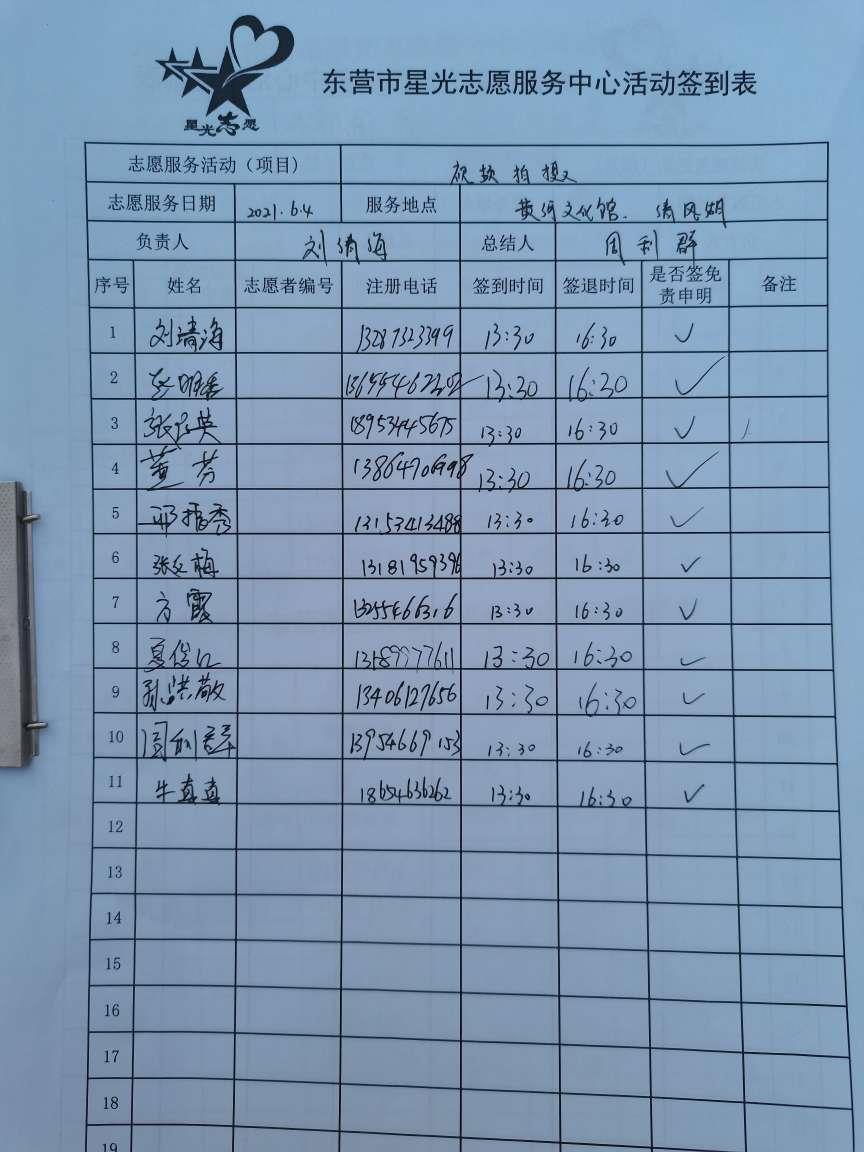 东营市星光志愿服务中心活动签到表
星光志愿
志愿服务活动（项目） 视频拍摄
志愿服务日期 2021.6.4 服务地点 黄河文化馆. 清风湖
负责人 刘清海 总结人 周利群
序号 姓名 志愿者编号 注册电话 签到时间 签退时间 是否签免责申明 备注
1 刘清海 13287323399 13:30 16:30 ✓
2 13:30 16:30 ✓
3 18953445675 13:30 16:30 ✓
4 董芬 13864706998 13:30 16:30 ✓
5 13153413488 13:30 16:30 ✓
6 张红梅 13181959396 13:30 16:30 ✓
7 方霞 13255466316 13:30 16:30 ✓
8 夏俊江 13:30 16:30 ✓
9 孙洪敬 13406127656 13:30 16:30 ✓
10 周利群 13954669153 13:30 16:30 ✓
11 牛真真 18654636262 13:30 16:30 ✓
12
13
14
15
16
17
18
19